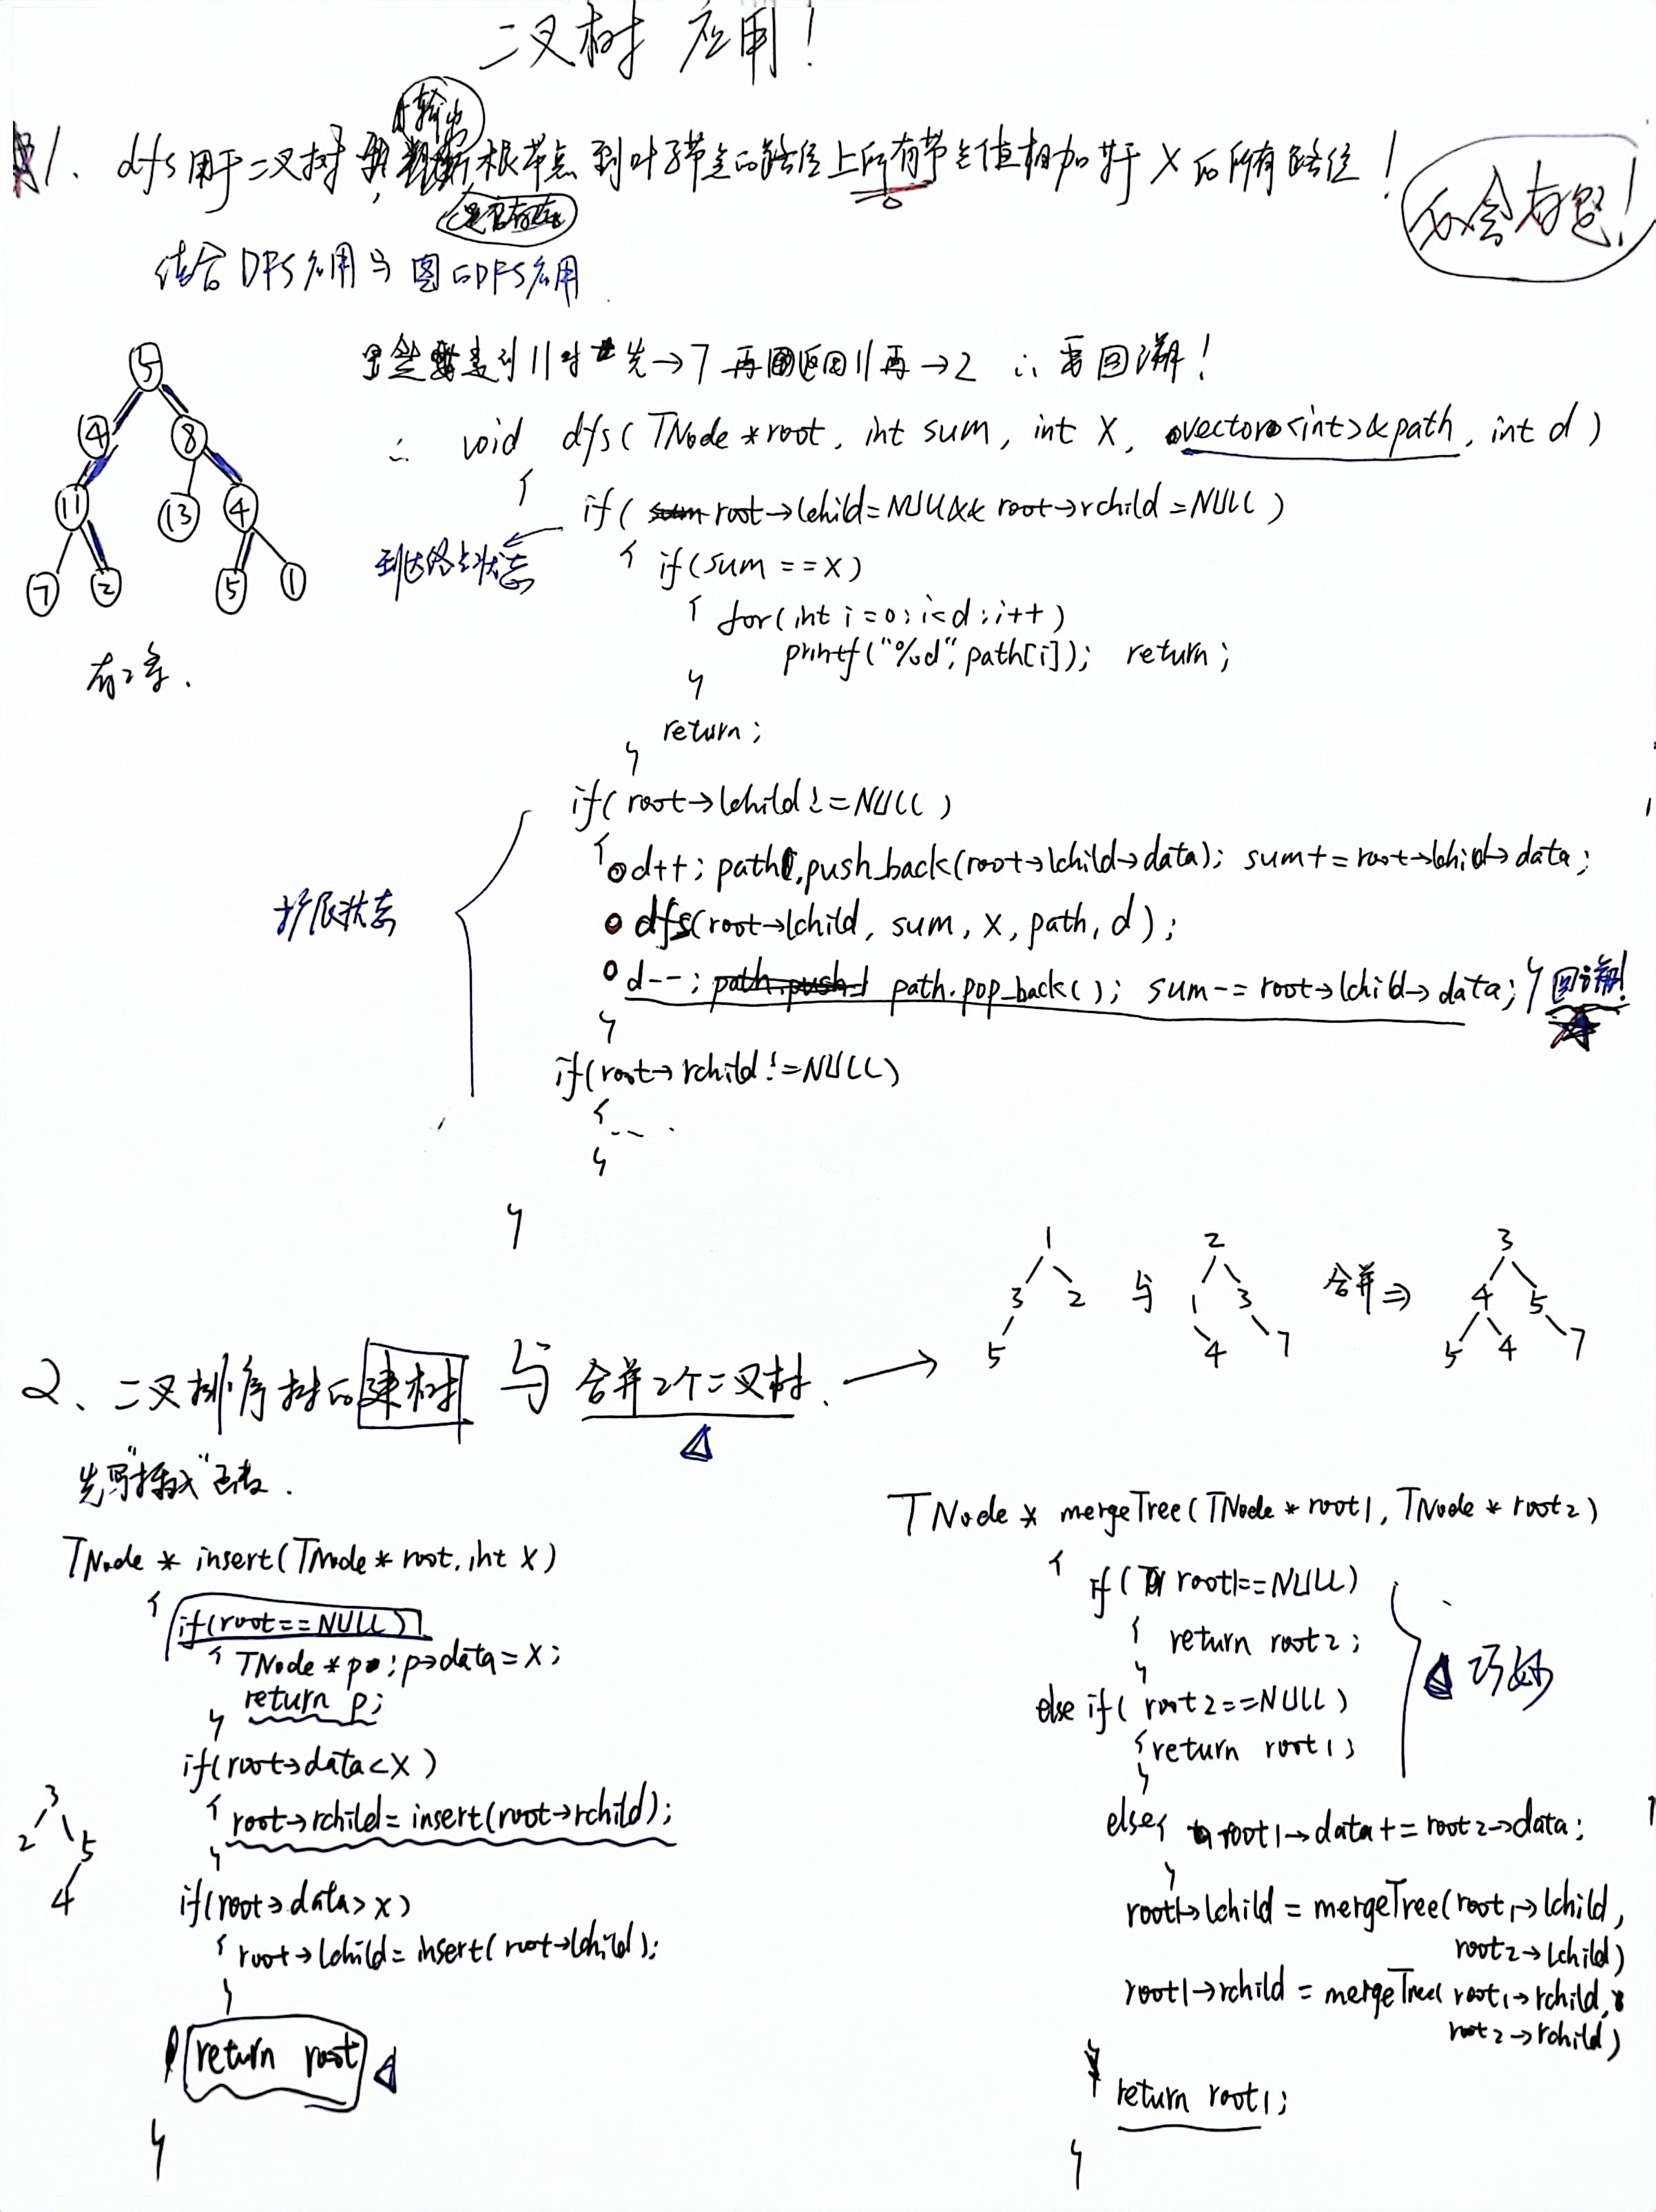 二叉树 应用！
输出
1. dfs用于二叉树, 判断根节点到叶子节点的路径上所有节点值相加等于X的所有路径！
是否存在
不会有负！
结合DFS应用与图的DFS应用
显然走到11时先→7再返回11再→2 ∴需回溯！
5
4 8
11 13 4
7 2 5 1
有2条.
∴ void dfs( TNode *root, int sum, int X, vector<int>&path, int d )
{
if( root→lchild=NULL&& root→rchild=NULL )
到达终点状态
{ if(sum ==X)
{ for(int i=0;i<d;i++)
printf("%d",path[i]); return;
}
return;
}
扩展状态
if( root→lchild!=NULL )
{ d++; path.push_back(root→lchild→data); sum+=root→lchild→data;
dfs(root→lchild, sum, X, path, d);
d--; path.pop_back(); sum-= root→lchild→data; } 回溯!
}
if(root→rchild!=NULL)
{ ...
}
}
2、二叉排序树的建树 与 合并2个二叉树. →
1
3 2
5
与
2
1 3
4 7
合并⇒
3
4 5
5 4 7
先写"插入"函数.
TNode * insert(TNode * root, int X)
{
if(root==NULL)
{ TNode *p; p→data=X;
return p;
}
if(root→data<X)
{ root→rchild=insert(root→rchild);
}
if(root→data>X)
{ root→lchild=insert(root→lchild);
}
return root
}
3
2 5
4
TNode * mergeTree(TNode * root1, TNode * root2)
{
if( root1==NULL)
{ return root2;
}
else if( root2==NULL)
{ return root1;
}
巧妙
else{ root1→data+=root2→data;
}
root1→lchild = mergeTree(root1→lchild,
root2→lchild)
root1→rchild = mergeTree( root1→rchild,
root2→rchild)
return root1;
}